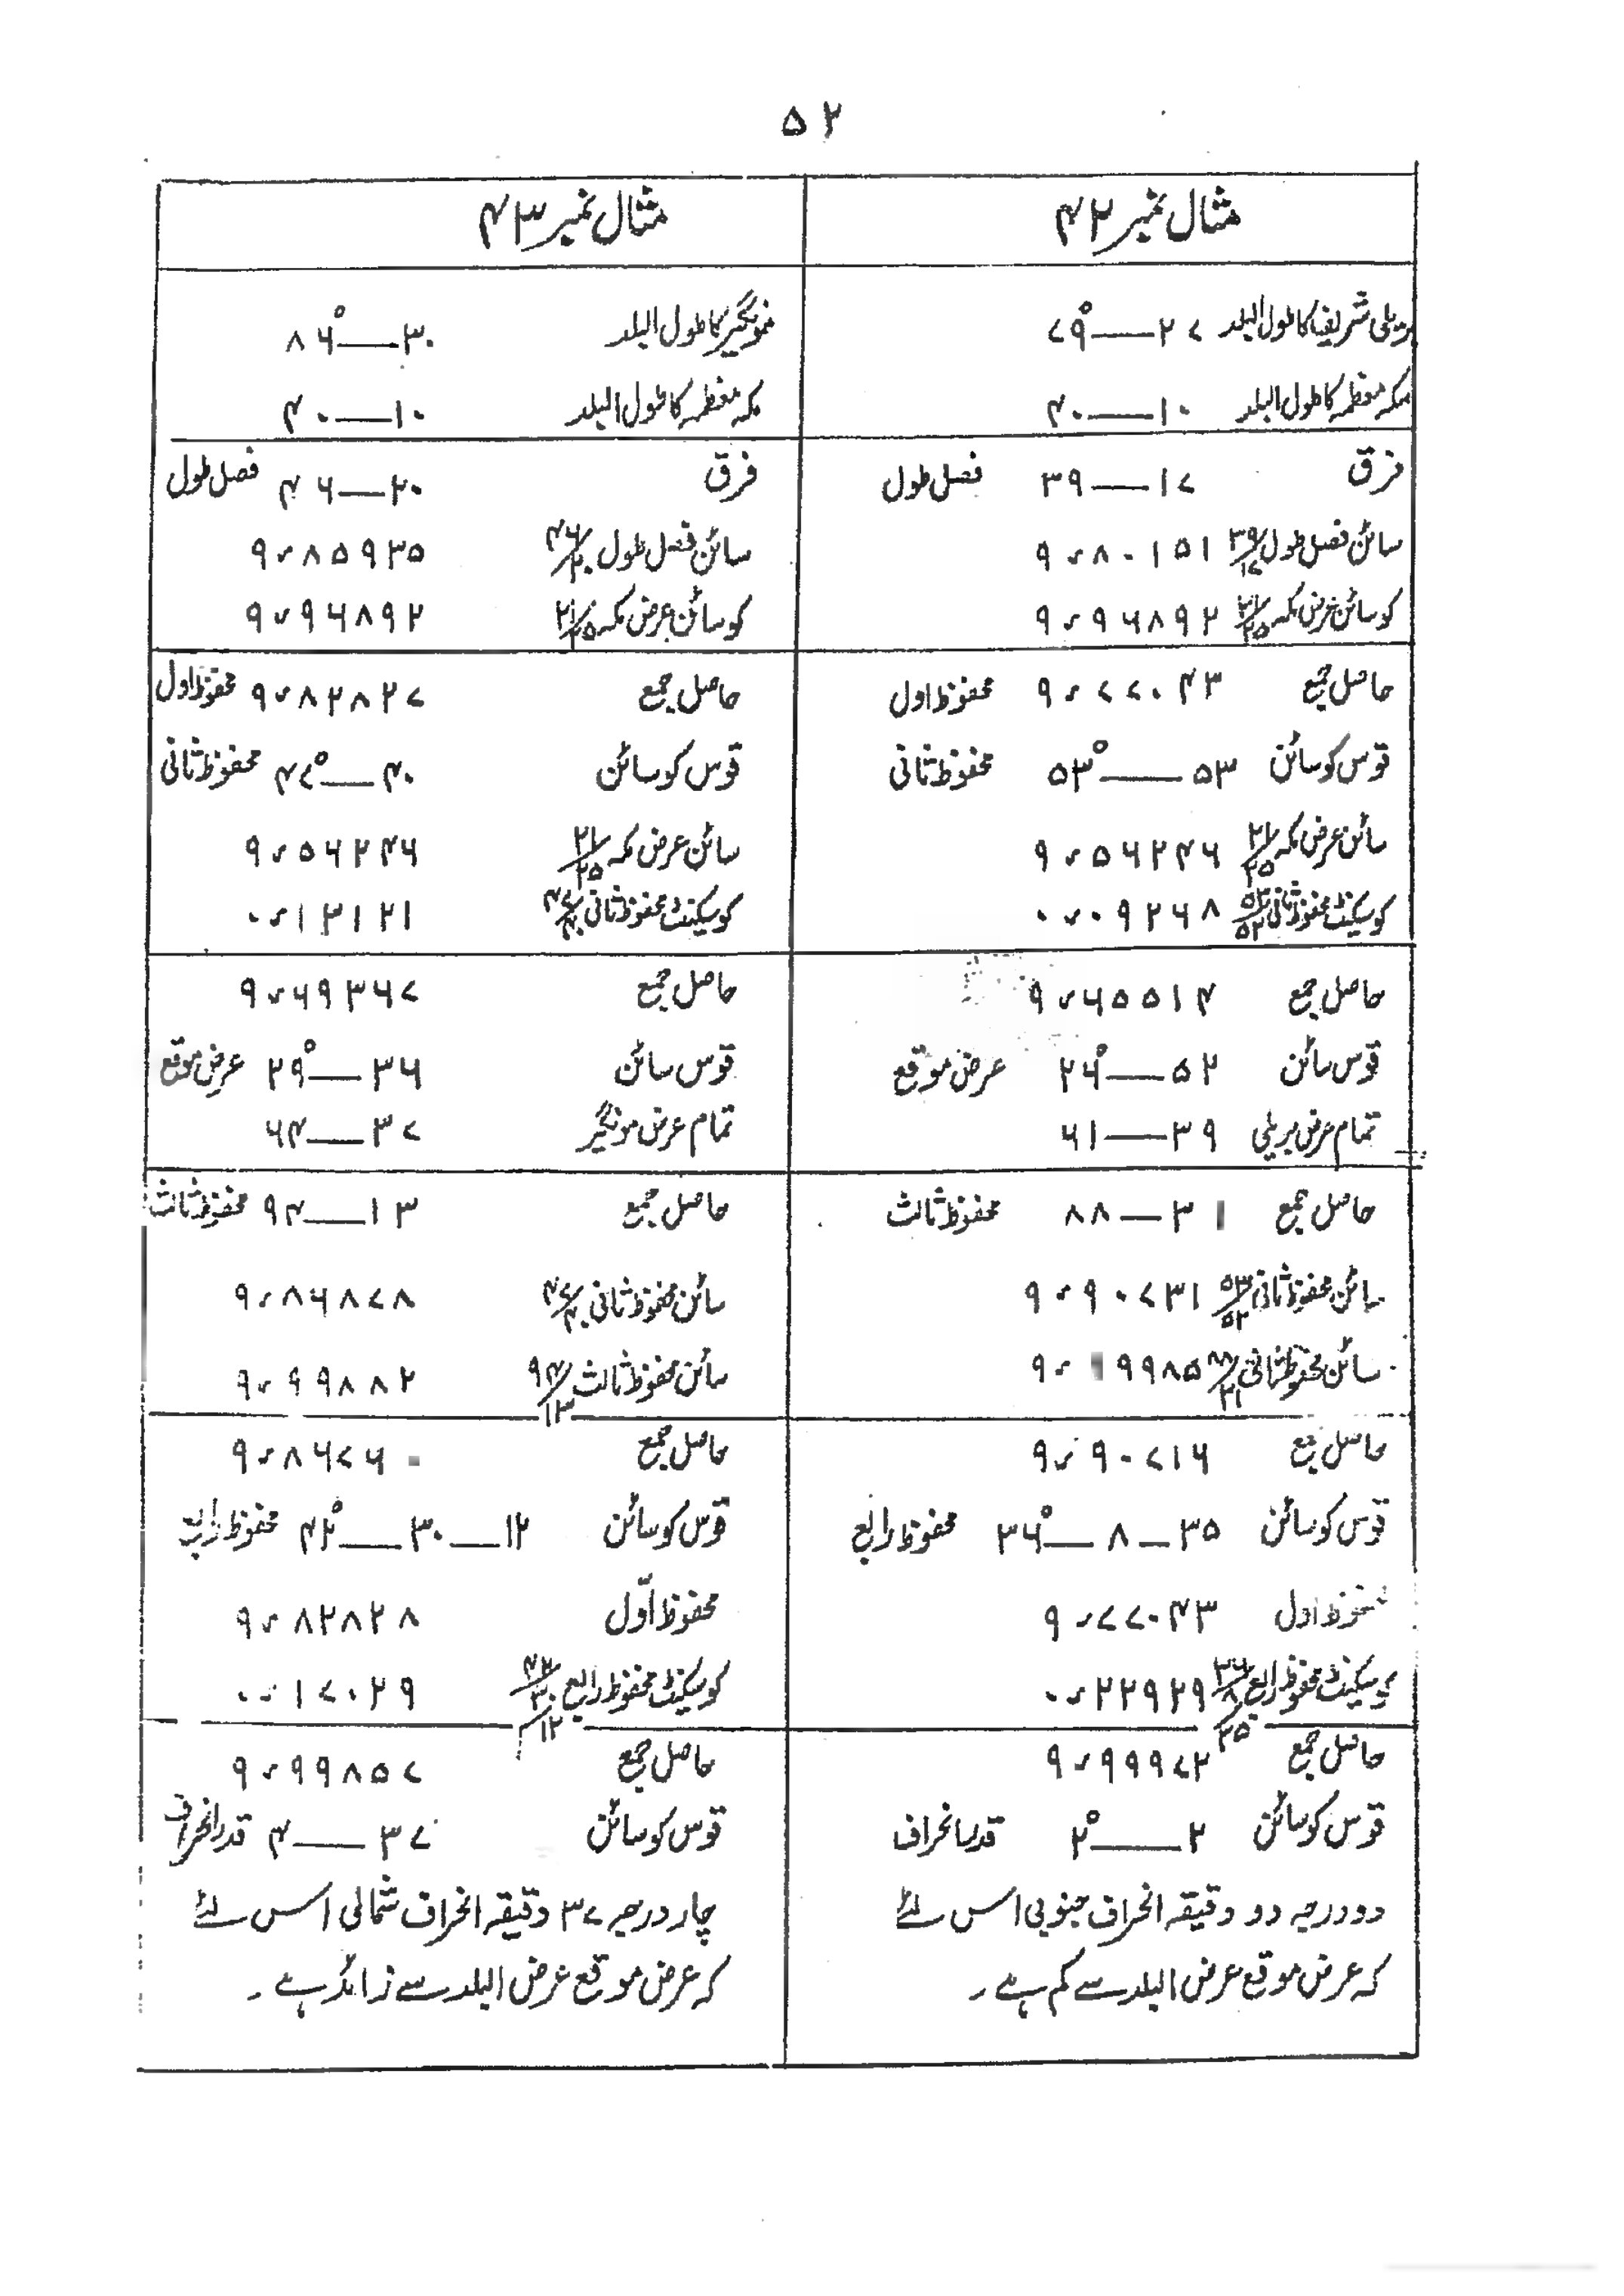 ۵۲
مثال نمبر ۴۲
بریلی شریف کا طول البلد ۲۷ — ۷۹°
مکہ معظمہ کا طول البلد ۱۰ — ۴۰
فرق ۱۷ — ۳۹ فصل طول
سائن فصل طول ۳۹/۱۷ ۹٫۸۰۱۵۱
کوسائن عرض مکہ ۲۱/۲۵ ۹٫۹۶۸۹۲
حاصل جمع ۹٫۷۷۰۴۳ محفوظ اول
قوس کوسائن ۵۳ — ۵۳° محفوظ ثانی
سائن عرض مکہ ۲۱/۲۵ ۹٫۵۶۲۴۶
کوسیکنٹ محفوظ ثانی ۵۳/۵۳ ۰٫۰۹۲۶۸
حاصل جمع ۹٫۶۵۵۱۴
قوس سائن ۵۲ — ۲۶° عرض موقع
تمام عرض بریلی ۳۹ — ۶۱
حاصل جمع ۳۱ — ۸۸ محفوظ ثالث
سائن محفوظ ثانی ۵۳/۵۳ ۹٫۹۰۷۳۱
سائن محفوظ ثانی ۸۸/۳۱ ۹٫۹۹۹۸۵
حاصل جمع ۹٫۹۰۷۱۶
قوس کوسائن ۳۵ — ۸ — ۳۶° محفوظ رابع
محفوظ اول ۹٫۷۷۰۴۳
کوسیکنٹ محفوظ رابع ۳۶/۸/۳۵ ۰٫۲۲۹۲۹
حاصل جمع ۹٫۹۹۹۷۲
قوس کوسائن ۲ — ۲° قدر انحراف
دو درجہ دو دقیقہ انحراف جنوبی اس لئے
کہ عرض موقع عرض البلد سے کم ہے۔
مثال نمبر ۴۳
مونگیر کا طول البلد ۳۰ — ۸۶°
مکہ معظمہ کا طول البلد ۱۰ — ۴۰
فرق ۲۰ — ۴۶ فصل طول
سائن فصل طول ۴۶/۲۰ ۹٫۸۵۹۳۵
کوسائن عرض مکہ ۲۱/۲۵ ۹٫۹۶۸۹۲
حاصل جمع ۹٫۸۲۸۲۷ محفوظ اول
قوس کوسائن ۴۰ — ۴۷° محفوظ ثانی
سائن عرض مکہ ۲۱/۲۵ ۹٫۵۶۲۴۶
کوسیکنٹ محفوظ ثانی ۴۷/۴۰ ۰٫۱۳۱۲۱
حاصل جمع ۹٫۶۹۳۶۷
قوس سائن ۳۶ — ۲۹° عرض موقع
تمام عرض مونگیر ۳۷ — ۶۴
حاصل جمع ۱۳ — ۹۴ محفوظ ثالث
سائن محفوظ ثانی ۴۷/۴۰ ۹٫۸۶۸۷۸
سائن محفوظ ثالث ۹۴/۱۳ ۹٫۹۹۸۸۲
حاصل جمع ۹٫۸۶۷۶۰
قوس کوسائن ۱۲ — ۳۰ — ۴۲° محفوظ رابع
محفوظ اوّل ۹٫۸۲۸۲۸
کوسیکنٹ محفوظ رابع ۴۲/۳۰/۱۲ ۰٫۱۷۰۲۹
حاصل جمع ۹٫۹۹۸۵۷
قوس کوسائن ۳۷ — ۴ قدر انحراف
چار درجہ ۳۷ دقیقہ انحراف شمالی اس لئے
کہ عرض موقع عرض البلد سے زائد ہے۔